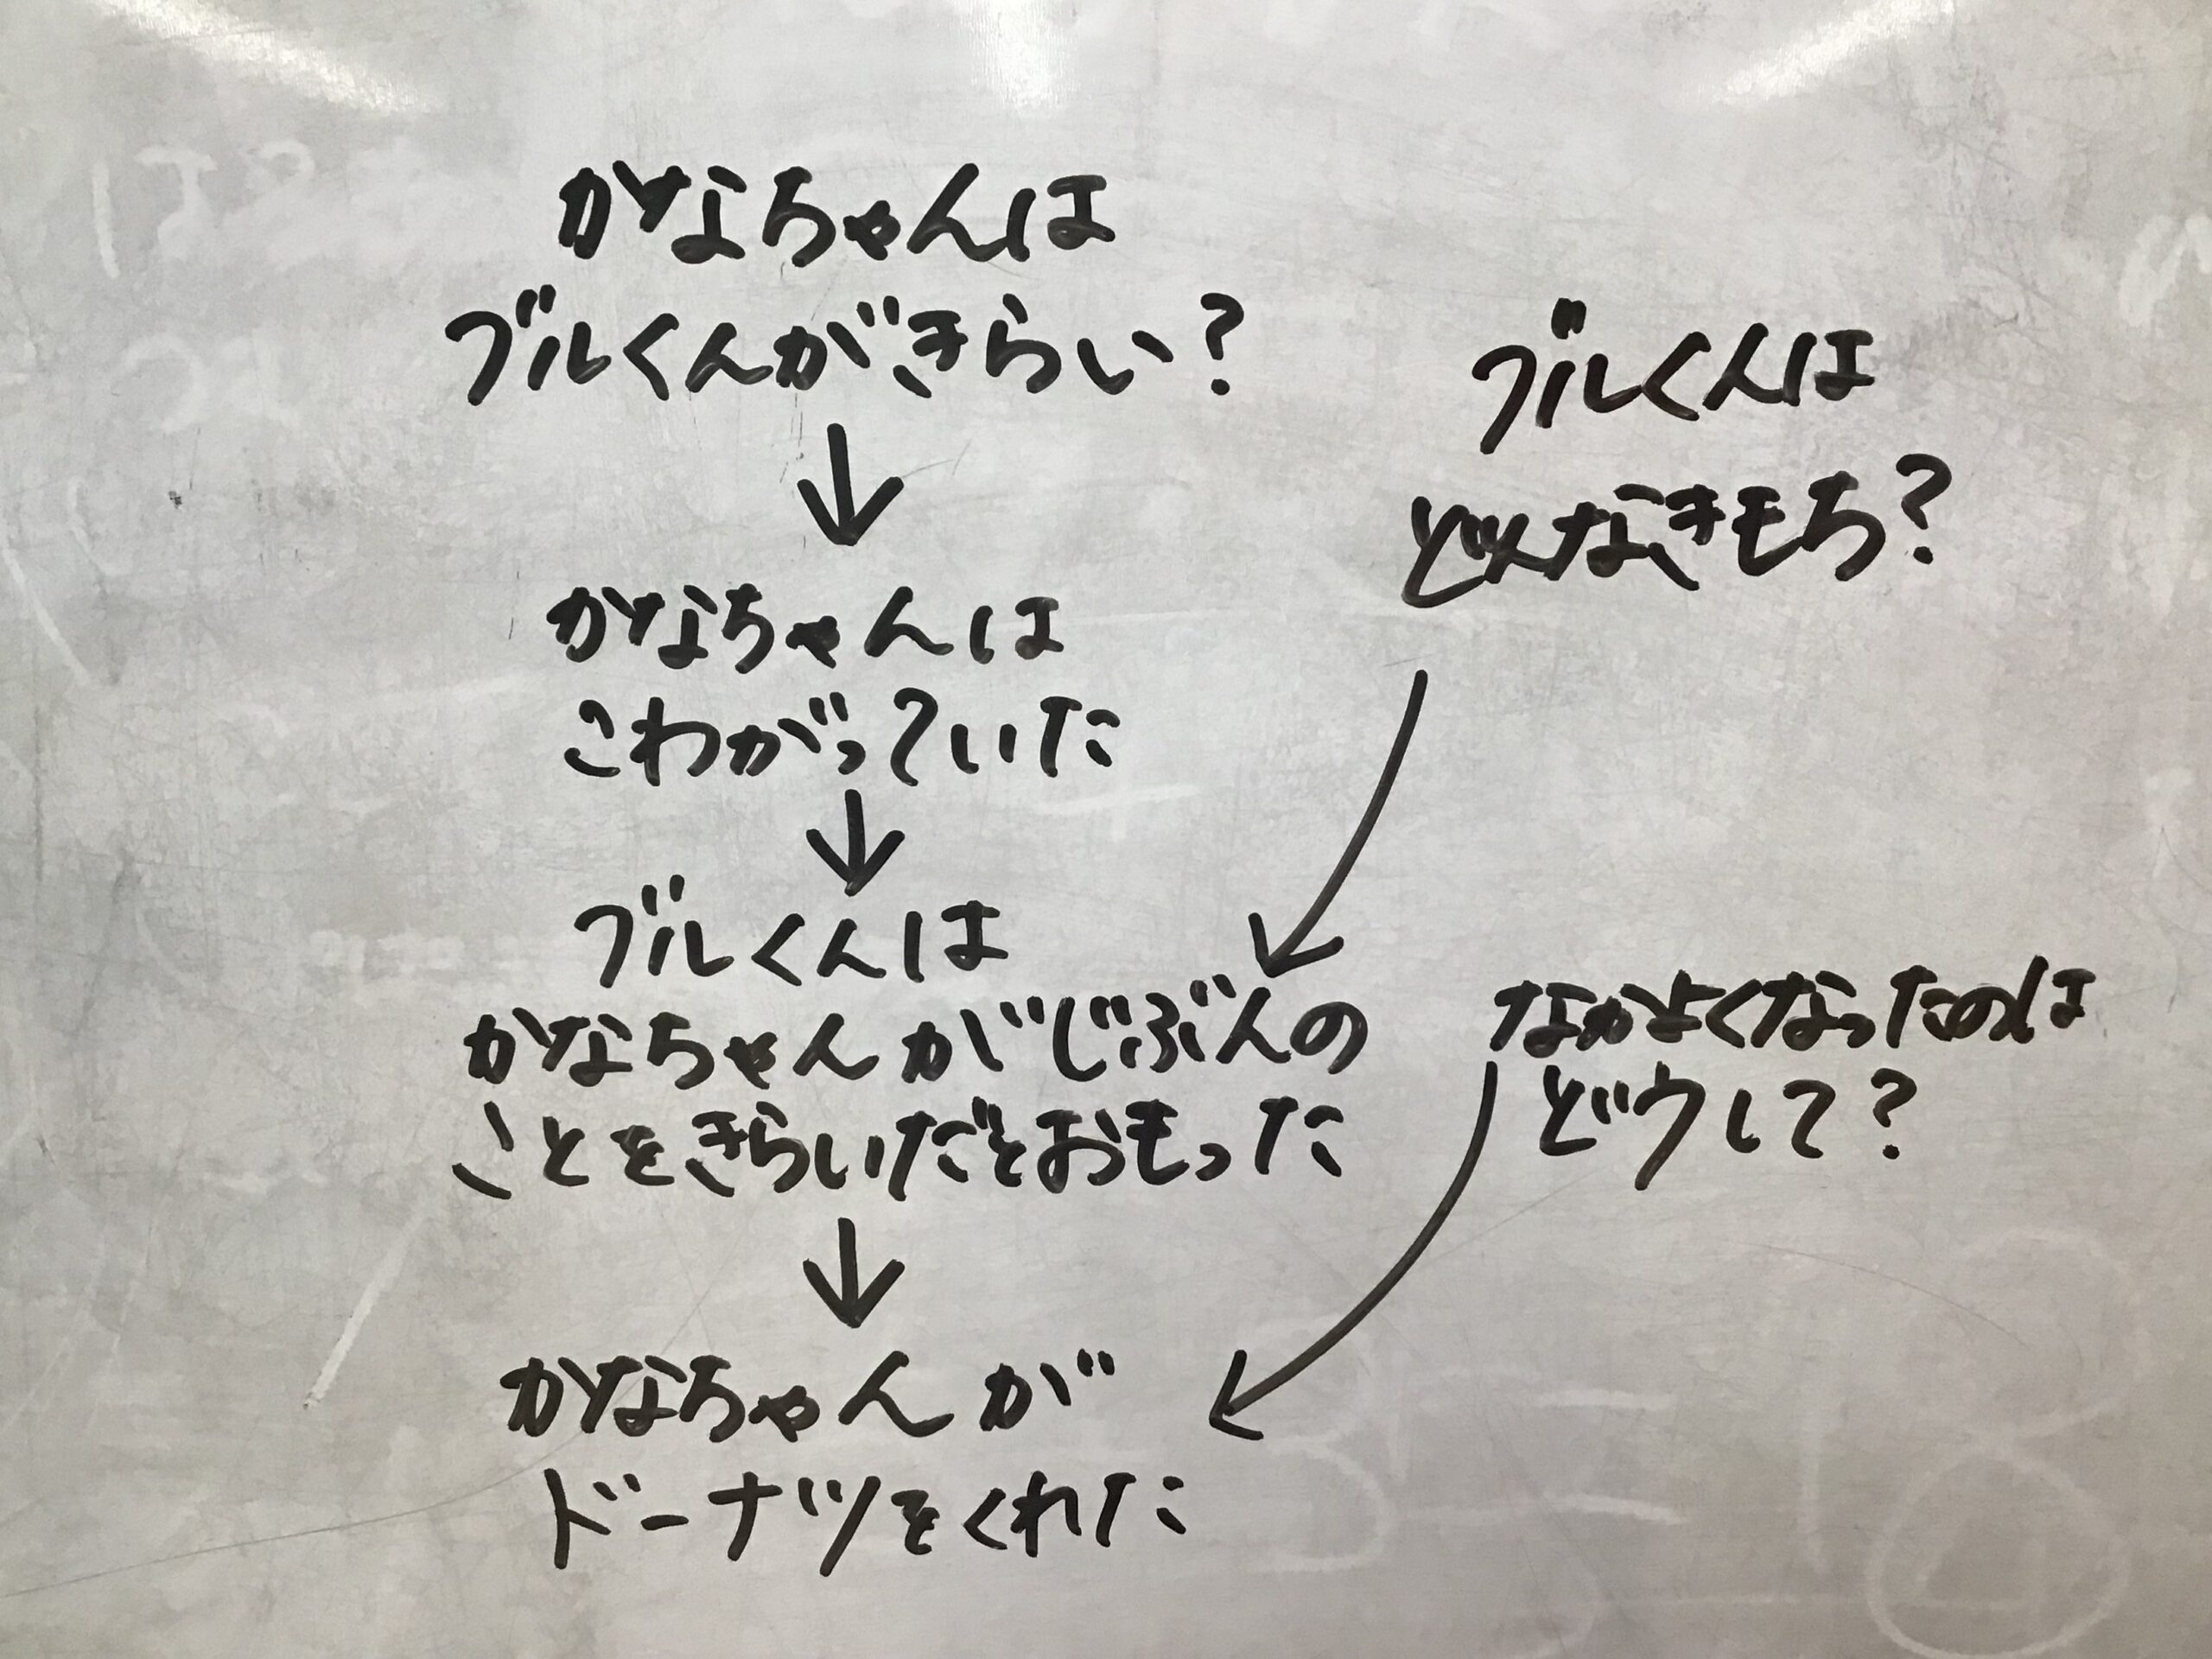 かなちゃんは
ブルくんがきらい?
↓
かなちゃんは
こわがっていた
↓
ブルくんは
かなちゃんがじぶんの
ことをきらいだとおもった
↓
かなちゃんが
ドーナツをくれた
ブルくんは
どんなきもち?
なかよくなったのは
どうして?